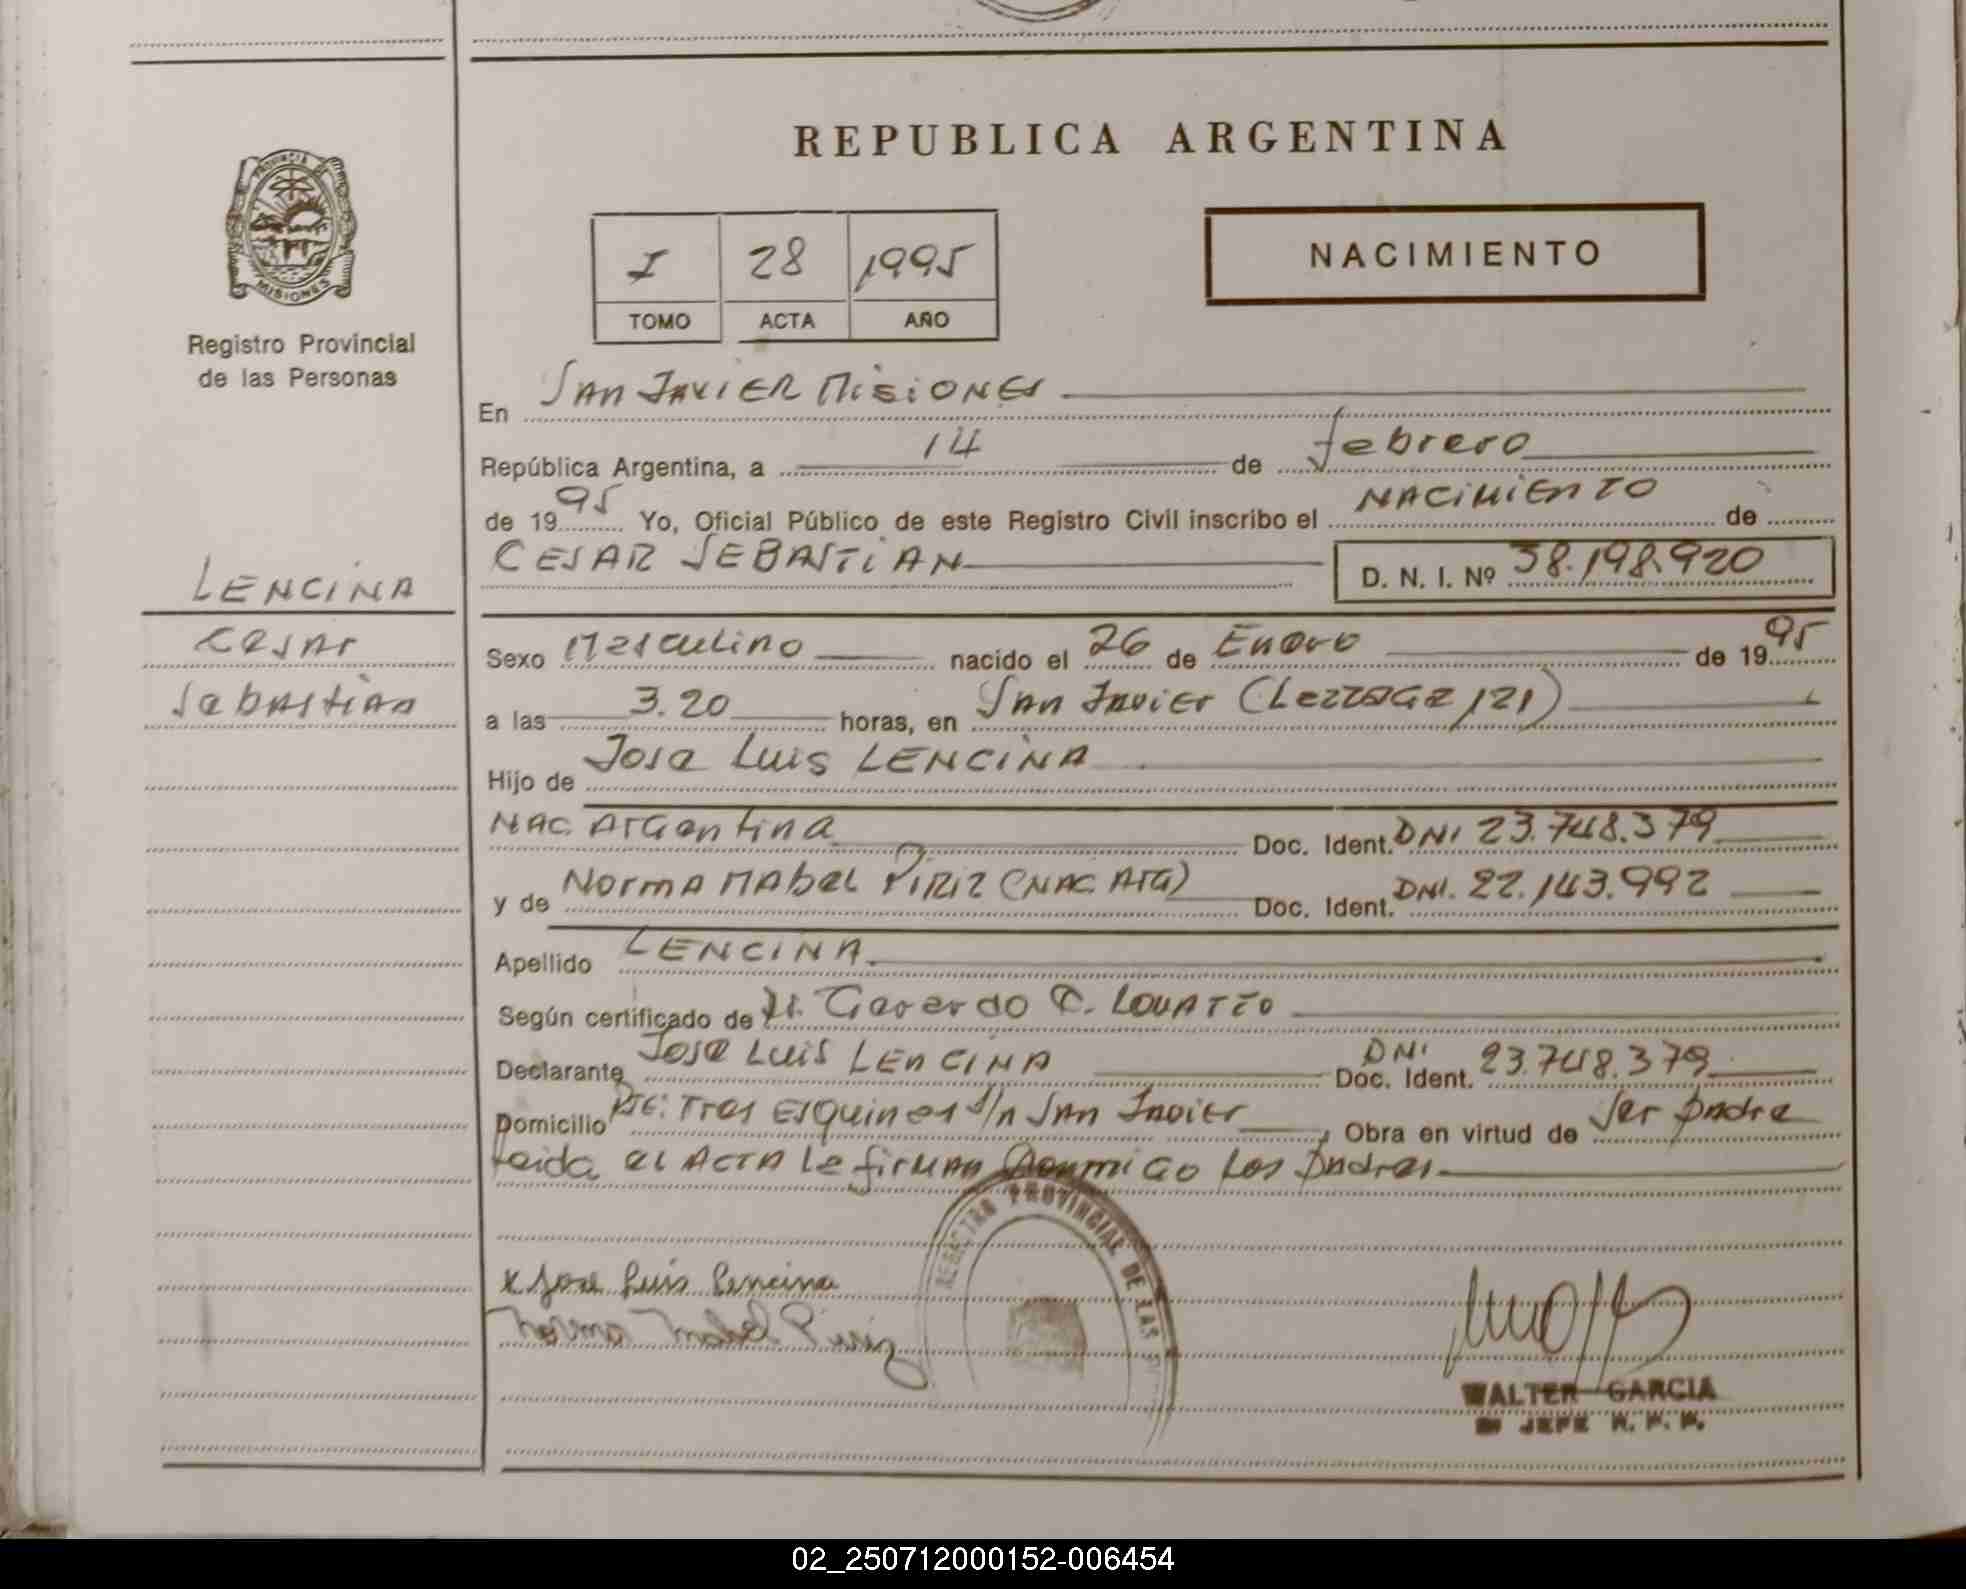 REPUBLICA ARGENTINA
PROVINCIA DE
MISIONES
Registro Provincial
de las Personas
I 28 1995
TOMO ACTA AÑO
NACIMIENTO
En SAN JAVIER MISIONES
República Argentina, a 14 de febrero
de 1995 Yo, Oficial Público de este Registro Civil inscribo el NACIMIENTO de
CESAR SEBASTIAN D. N. I. Nº 38.198.920
LENCINA
Cesar
Sebastian
Sexo Masculino nacido el 26 de Enero de 1995
a las 3.20 horas, en San Javier (121)
Hijo de Jose Luis LENCINA
NAC. Argentina Doc. Ident. DNI 23.748.379
y de Norma Mabel PIRIZ (NAC. Arg) Doc. Ident. DNI. 22.143.992
Apellido LENCINA.
Según certificado de Dr. Gerardo C. LOVATTO
Declarante Jose Luis LENCINA DNI Doc. Ident. 23.748.379
Domicilio Pje: Tres Esquinas s/n San Javier, Obra en virtud de ser padre
Leida el ACTA le firman conmigo los padres
REGISTRO PROVINCIAL DE LAS
x Jose Luis Lencina
Norma Mabel Piriz
WALTER GARCIA
JEFE
02_250712000152-006454